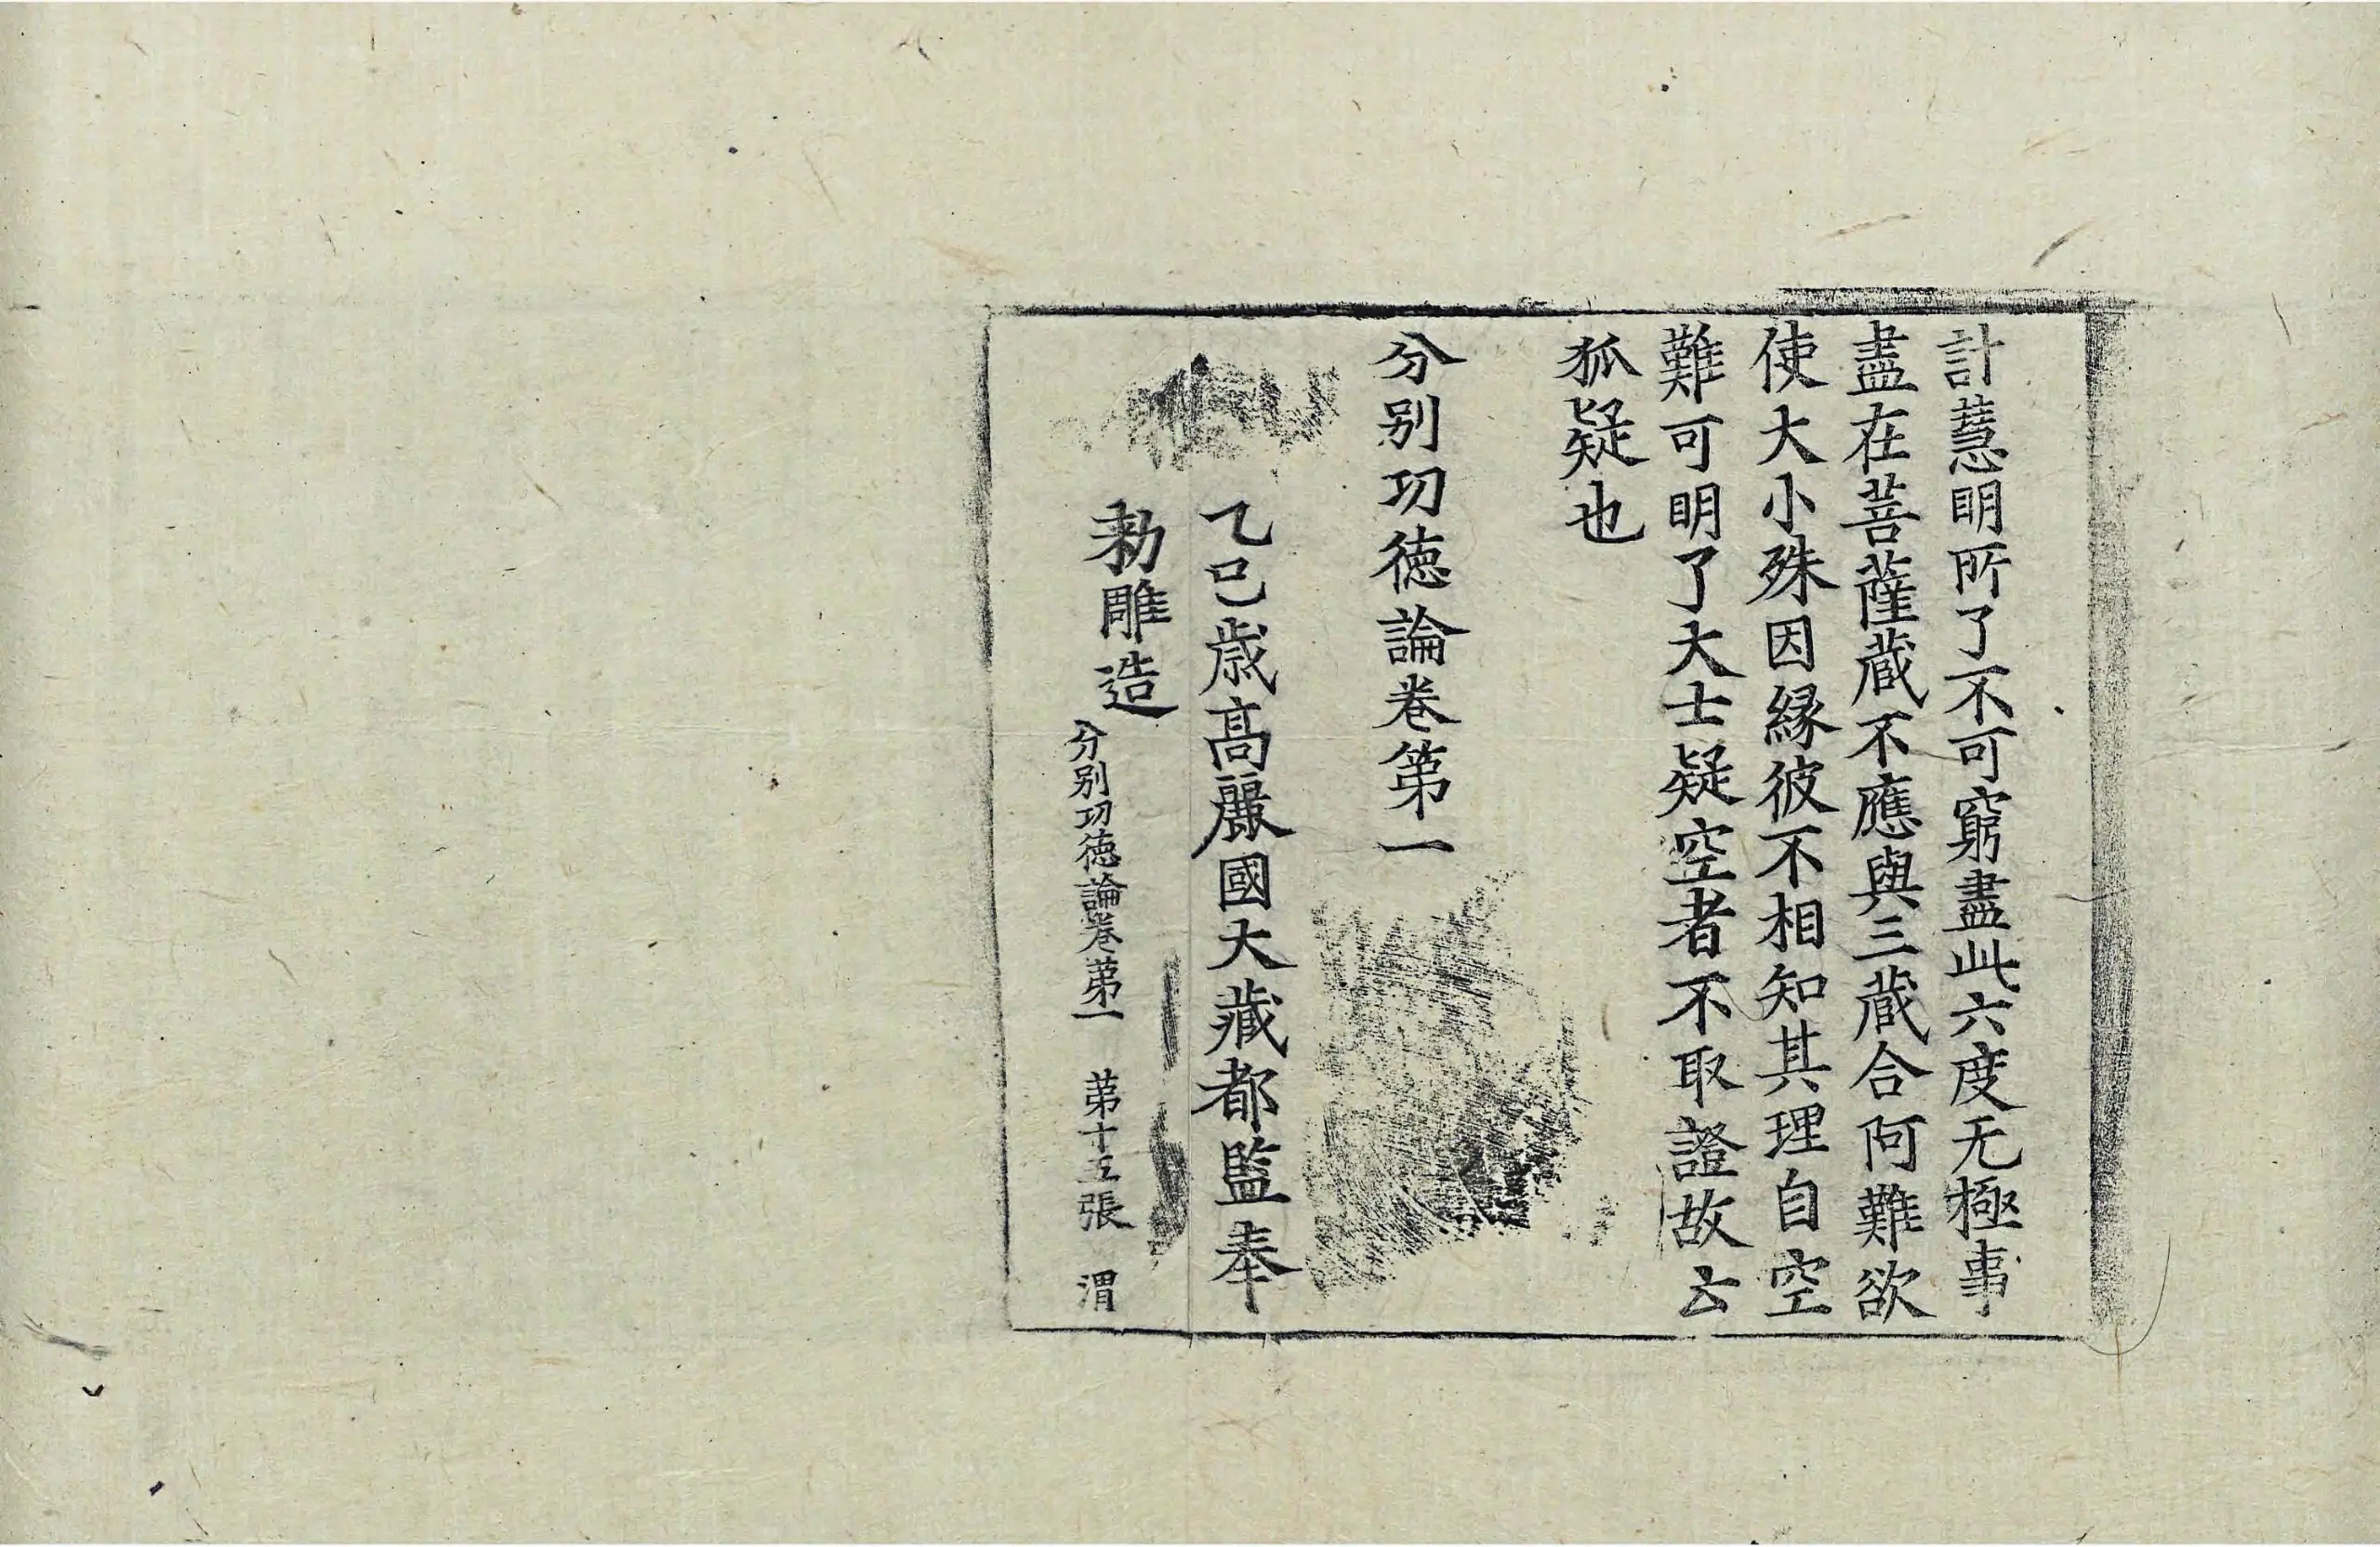 計慧明所了不可窮盡此六度无極事
盡在菩薩蔵不應與三蔵合阿難欲
使大小殊因縁彼不相知其理自空
難可明了大士疑空者不取證故云
狐疑也
分别功徳論卷第一
乙巳歳高麗國大藏都監奉
勑雕造
分别功徳論卷第一 第十五張 渭